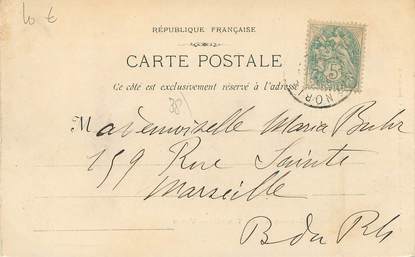 10 €
RÉPUBLIQUE FRANÇAISE
CARTE POSTALE
Ce côté est exclusivement réservé à l'adresse
5
38
Mademoiselle Maria Buhr
159 Rue Sainte
Marseille
B du Rh